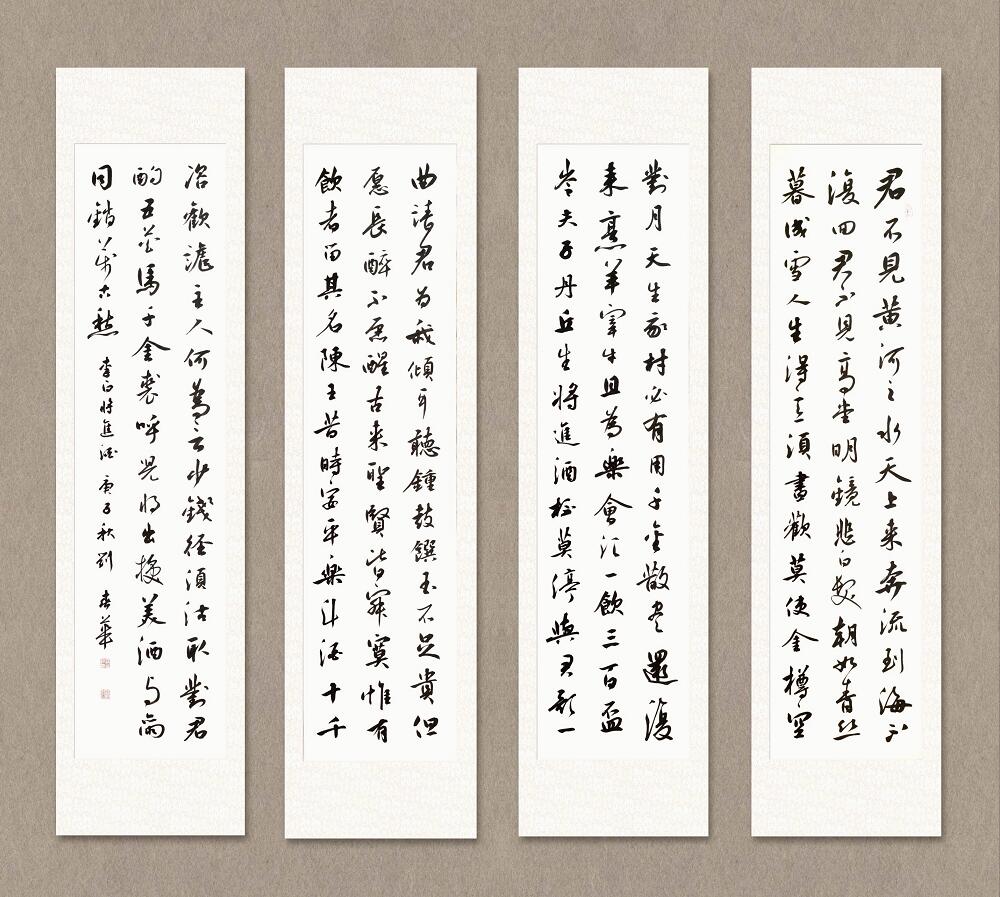 君不見黄河之水天上来奔流到海不
復回君不見高堂明鏡悲白髮朝如青丝
暮成雪人生得意須盡歡莫使金樽空
對月天生我材必有用千金散盡還復
来烹羊宰牛且為樂會須一飲三百盃
岑夫子丹丘生將進酒杯莫停與君歌一
曲請君为我傾耳聽鍾鼓饌玉不足貴但
愿長醉不愿醒古来聖賢皆寂寞惟有
飲者留其名陳王昔時宴平樂斗酒十千
恣歡謔主人何為言少錢径須沽取對君
酌五花馬千金裘呼兒将出換美酒与爾
同銷萬古愁 李白将進酒 庚子秋劉春華